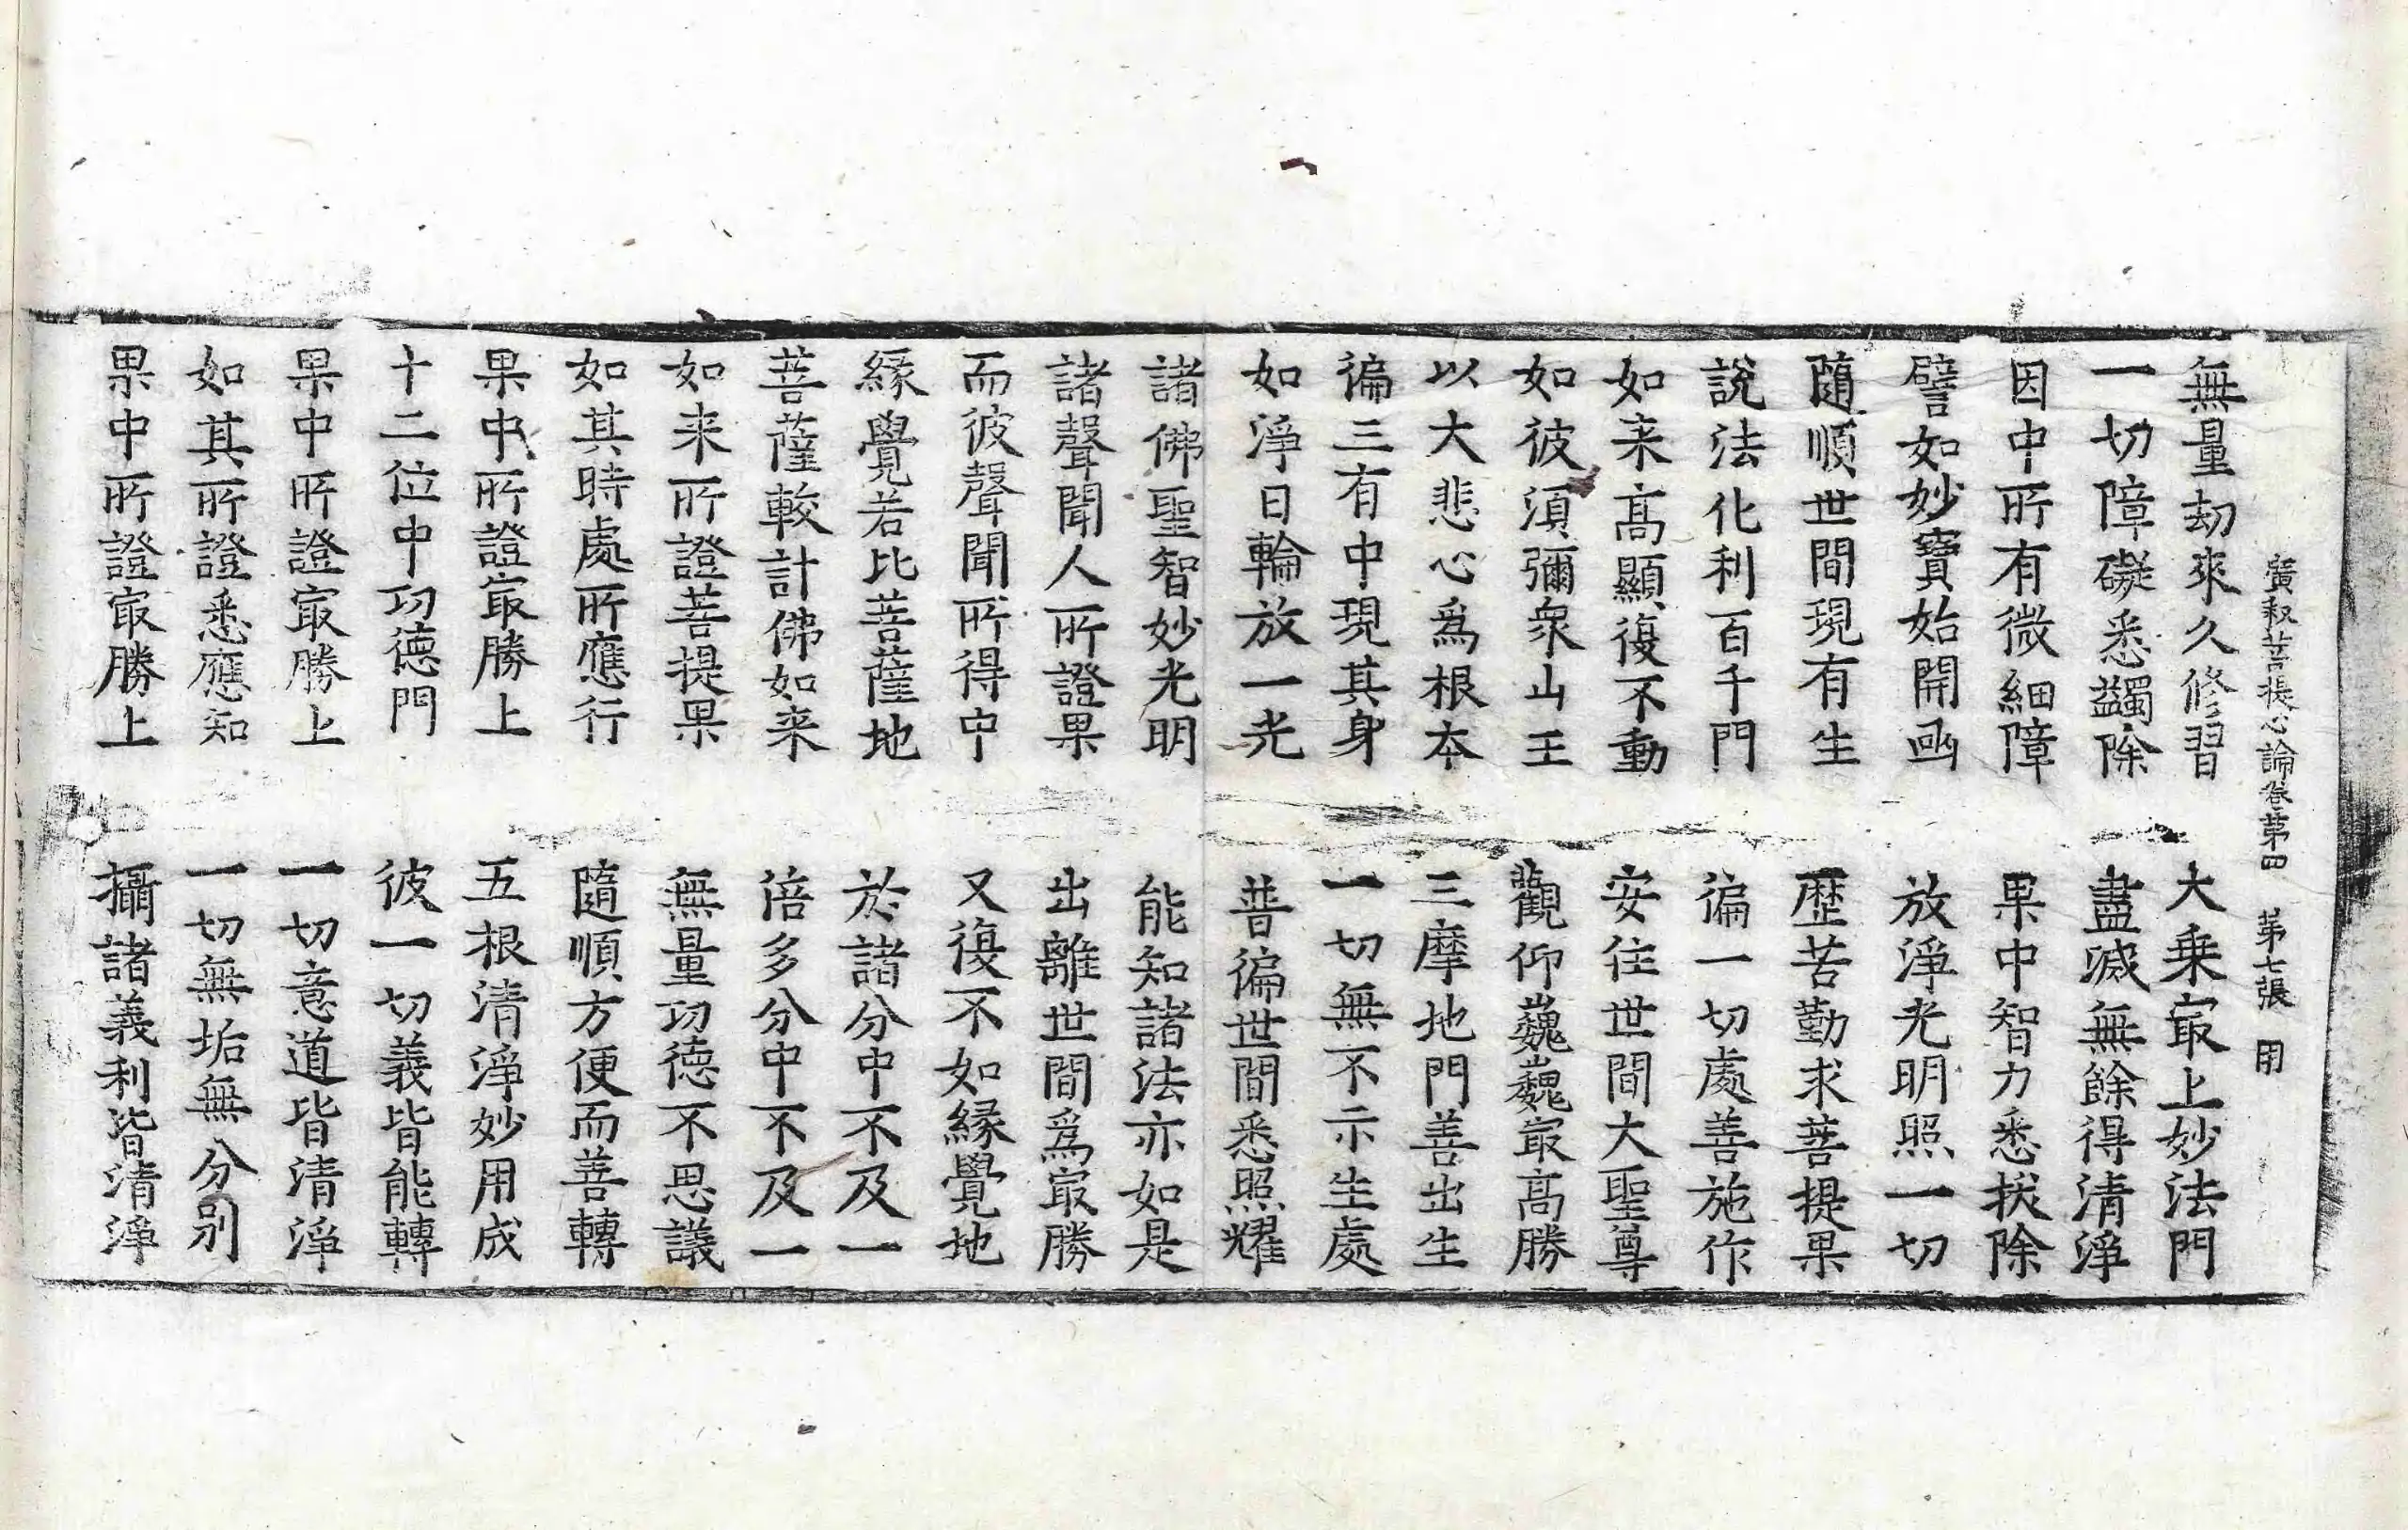 廣釈菩提心論卷第四 第七張 用
無量劫來久修習 大乗㝡上妙法門
一切障礙悉蠲除 盡滅無餘得清淨
因中所有微細障 果中智力悉拔除
譬如妙寶始開凾 放淨光明照一切
隨順世間現有生 歷苦勤求菩提果
說法化利百千門 徧一切處善施作
如来高顯復不動 安住世間大聖尊
如彼須彌衆山王 觀仰巍巍㝡高勝
以大悲心爲根本 三摩地門善出生
徧三有中現其身 一切無不示生處
如淨日輪放一光 普徧世間悉照耀
諸佛聖智妙光明 能知諸法亦如是
諸聲聞人所證果 出離世間爲㝡勝
而彼聲聞所得中 又復不如緣覺地
緣覺若比菩薩地 於諸分中不及一
菩薩較計佛如来 倍多分中不及一
如来所證菩提果 無量功德不思議
如其時處所應行 隨順方便而善轉
果中所證㝡勝上 五根清淨妙用成
十二位中功德門 彼一切義皆能轉
果中所證㝡勝上 一切意道皆清淨
如其所證悉應知 一切無垢無分別
果中所證㝡勝上 攝諸義利皆清淨